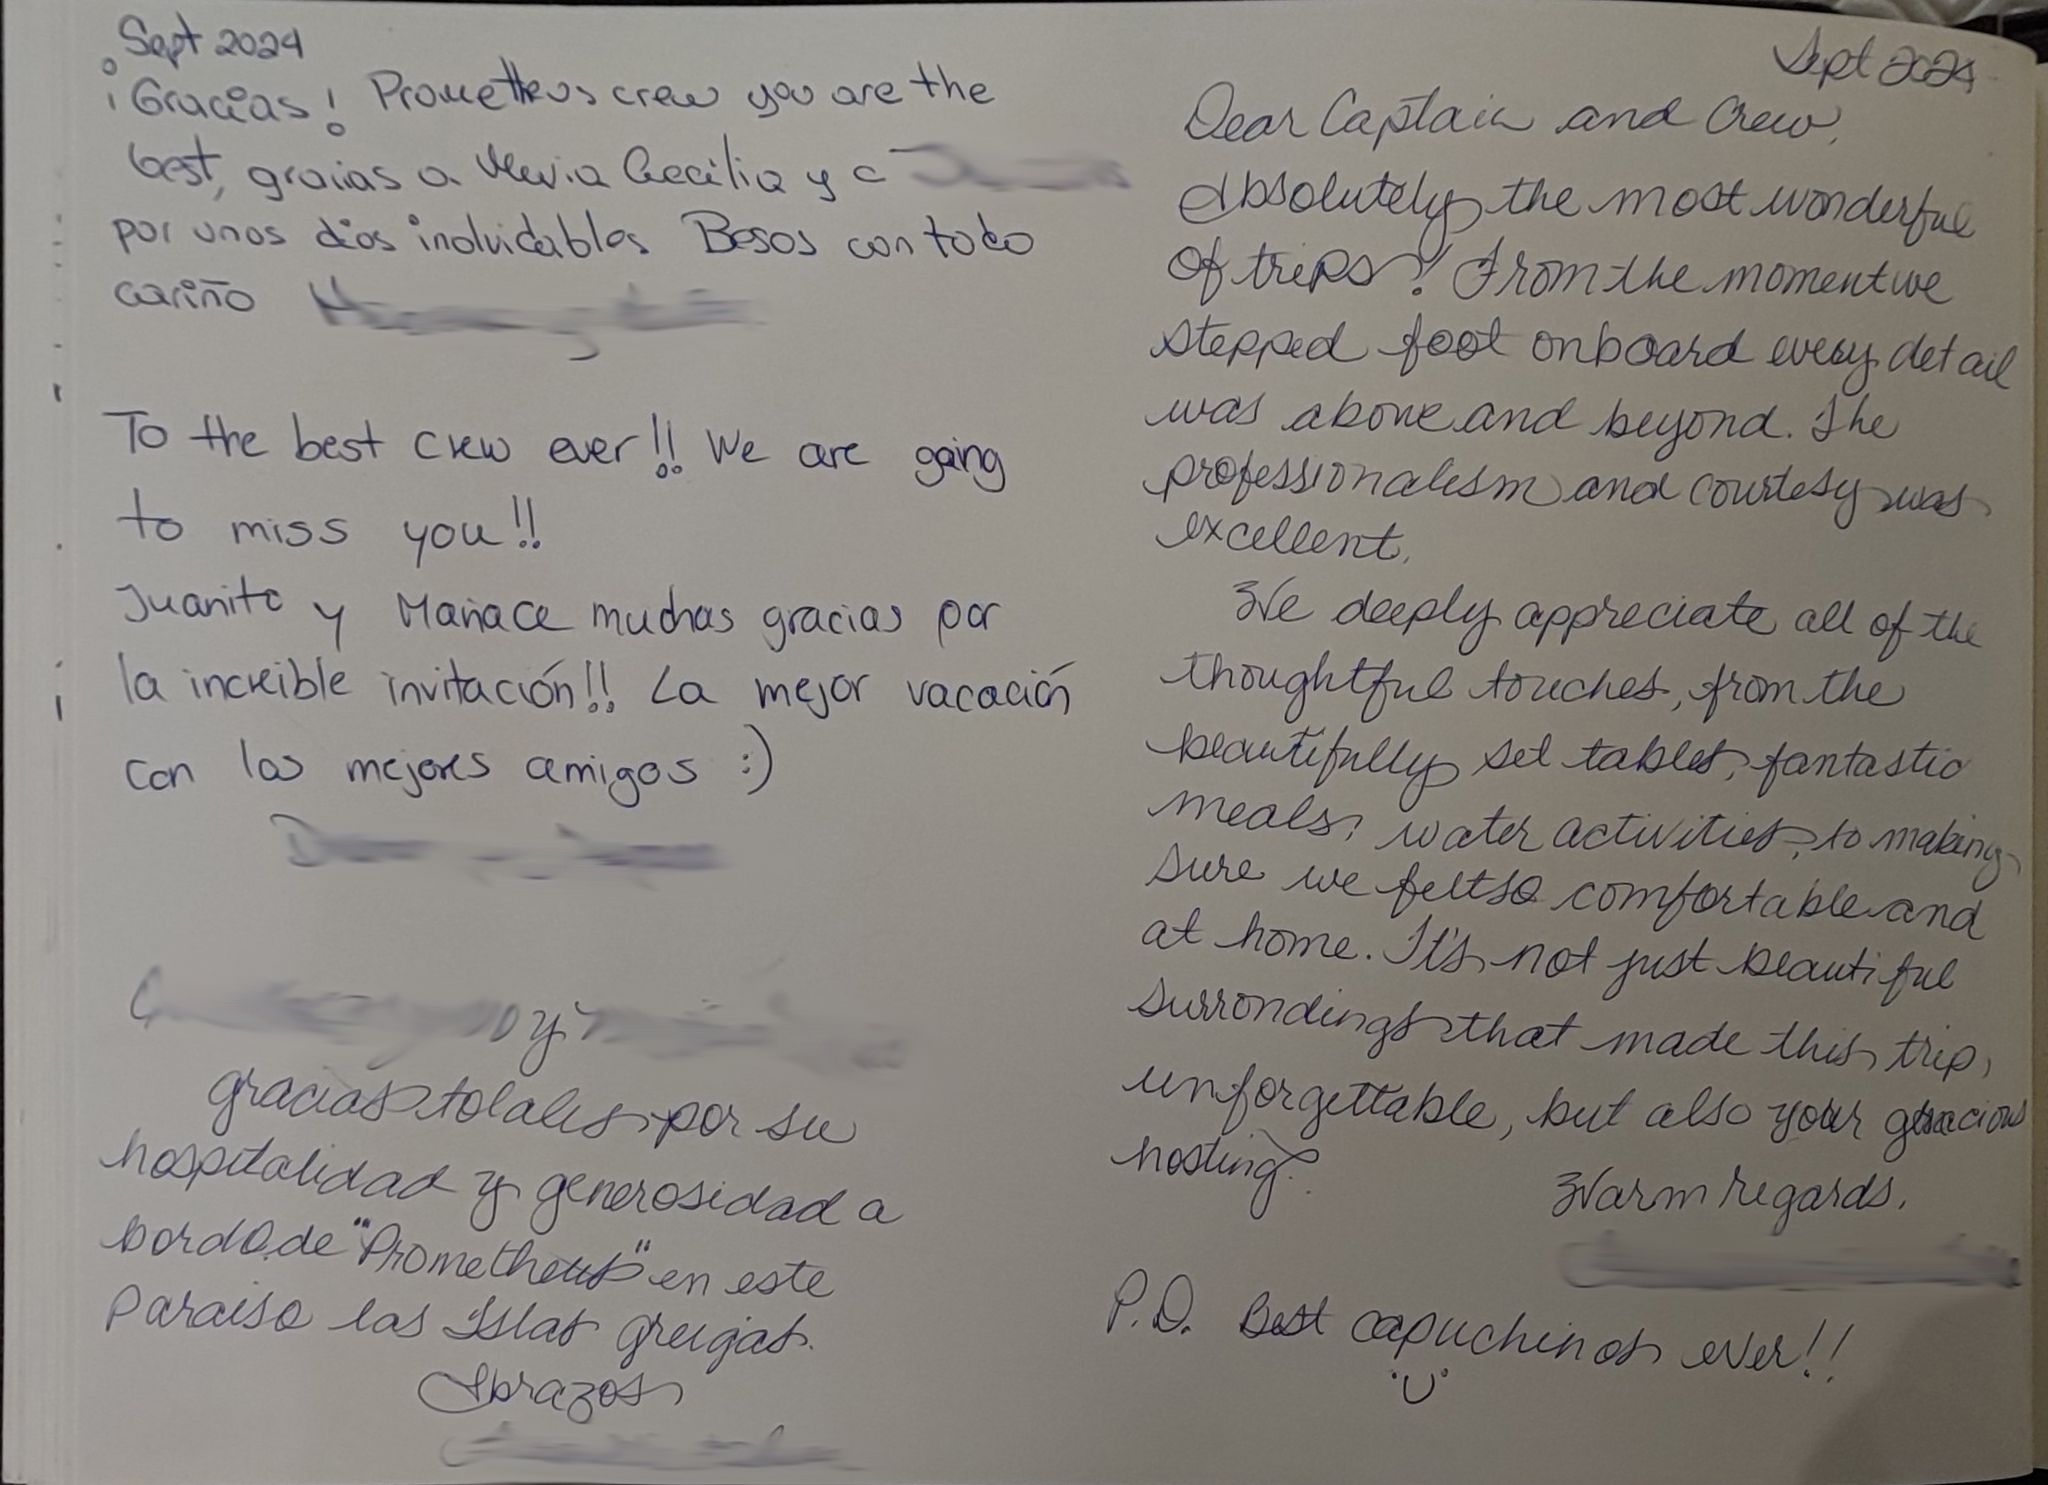 Sept 2024
¡Gracias! Prometheus crew you are the
best, gracias a Maria Cecilia y a
por unos días inolvidables Besos con todo
cariño
To the best crew ever!! We are going
to miss you!!
Juanito y Mañace muchas gracias por
la increible invitación!! La mejor vacación
con los mejores amigos :)
y
gracias totales por su
hospitalidad y generosidad a
bordo de "Prometheus" en este
Paraiso las Islas griegas.
Abrazos
Sept 2024
Dear Captain and Crew,
Absolutely the most wonderful
of trips! From the moment we
stepped foot onboard every detail
was above and beyond. The
professionalism and courtesy was
excellent.
We deeply appreciate all of the
thoughtful touches, from the
beautifully set tables, fantastic
meals, water activities, to making
sure we felt so comfortable and
at home. It's not just beautiful
surrondings that made this trip,
unforgettable, but also your gracious
hosting.
Warm regards,
P.D. Best capuchinos ever!!